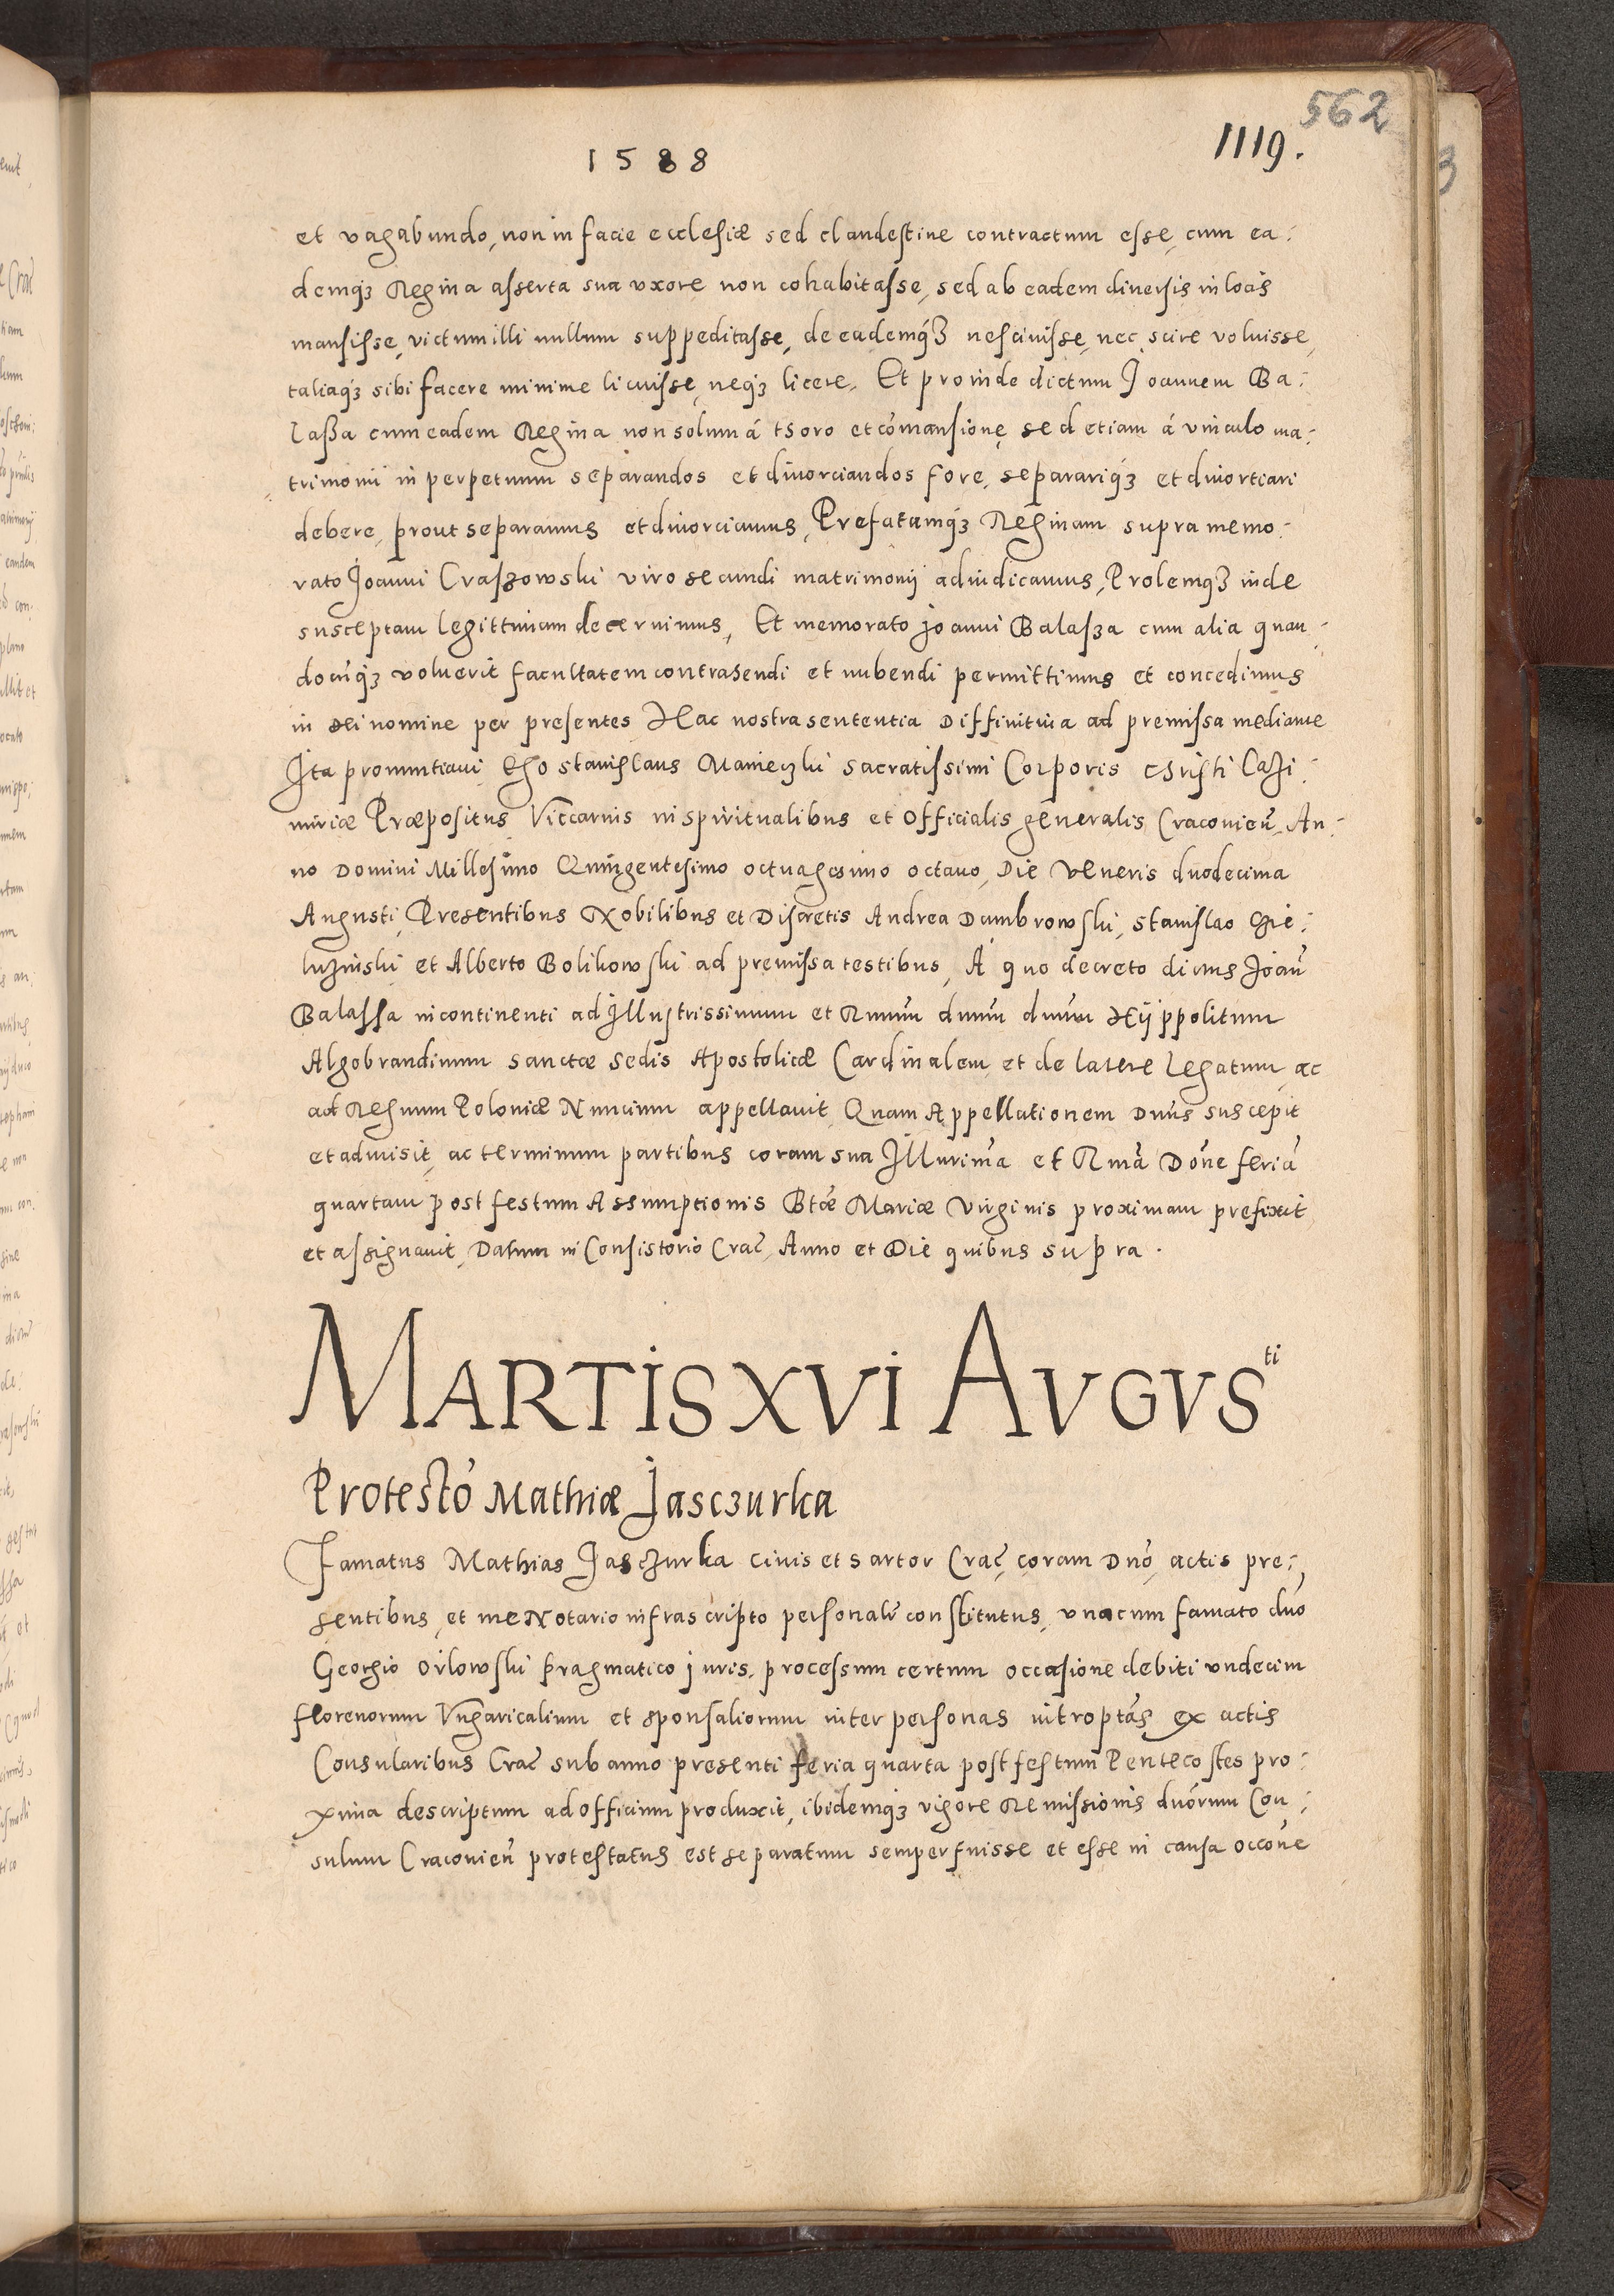 562
1119.
1588
et vagabundo, non in facie ecclesiæ sed clandestine contractum esse, cum ea:
demqꝫ Regina asserta sua uxore non cohabitasse, sed ab eadem diversis in locis
mansisse, victum illi nullum suppeditasse, de eademqꝫ nescivisse, nec scire voluisse,
taliaqꝫ sibi facere minime licuisse, neqꝫ licere, Et proinde dictum Joannem Ba:
laßa cum eadem Regina non solum á thoro et cómansione, sed etiam á vinculo ma:
trimonii in perpetuum separandos et divorciandos fore, separariqꝫ et divortiari
debere, prout separamus et divorciamus, Prefatamqꝫ Reginam supra memo:
rato Joanni Crasꝫowski viro secundi matrimonij adiudicamus, Prolemqꝫ inde
susceptam legittimam decernimus, Et memorato joanni Balasꝫa cum alia quan:
docúqꝫ voluerit facultatem contrahendi et nubendi permittimus et concedimus
in dei nomine per presentes Hac nostra sententia Diffinitiva ad premissa mediante
Ita pronuntiavi Ego Stanislaus Manieczki sacratissimi Corporis Christi Cazi:
miriæ Præpositus Viccarius in spiritualibus et Officialis generalis Cracovien̄ An:
no Domini Millesimo Quingentesimo octuagesimo octavo, Die Veneris duodecima
Augusti, Presentibus Nobilibus et Discretis Andrea Dambrowski, Stanislao Gie:
luzinski et Alberto Bolikowski ad premissa testibus, A quo decreto dictus Joan̄
Balassa incontinenti ad Illustrissimum et Rmum̄ dnum̄ dnum̄ Hijppolitum
Algobrandinum sanctæ sedis Apostolicæ Cardinalem et de latere Legatum, ac
ad Regnum Poloniæ Nuncium appellavit Quam Appellationem Dnūs suscepit
et admisit, ac terminum partibus coram sua Illurima et Rmā Dōne feriā
quartam post festum Assumptionis Btæ Mariæ Virginis proximam prefixit
et assignavit, Datum in Consistorio Crac̄ Anno et Die quibus supra.
MARTIS XVI AVGVSti
Protestó Mathiæ Jasczurka
Famatus Mathias Jasczurka Civis et Sartor Crac̄ coram Dnó actis pre:
sentibus, et me Notario infrascripto personalr̄ constitutus, una cum famato dnó
Georgio Orlowski pragmatico juris, processum certum occasione debiti undecim
florenorum Ungaricalium et sponsaliorum inter personas introptās ex actis
Consularibus Crac̄ sub anno presenti feria quarta post festum Pentecostes pro:
xima descriptum ad officium produxit, ibidemqꝫ vigore Remissionis dnórum Con:
sulum Cracovien̄ protestatus est se paratum semper fuisse et esse in causa occōne